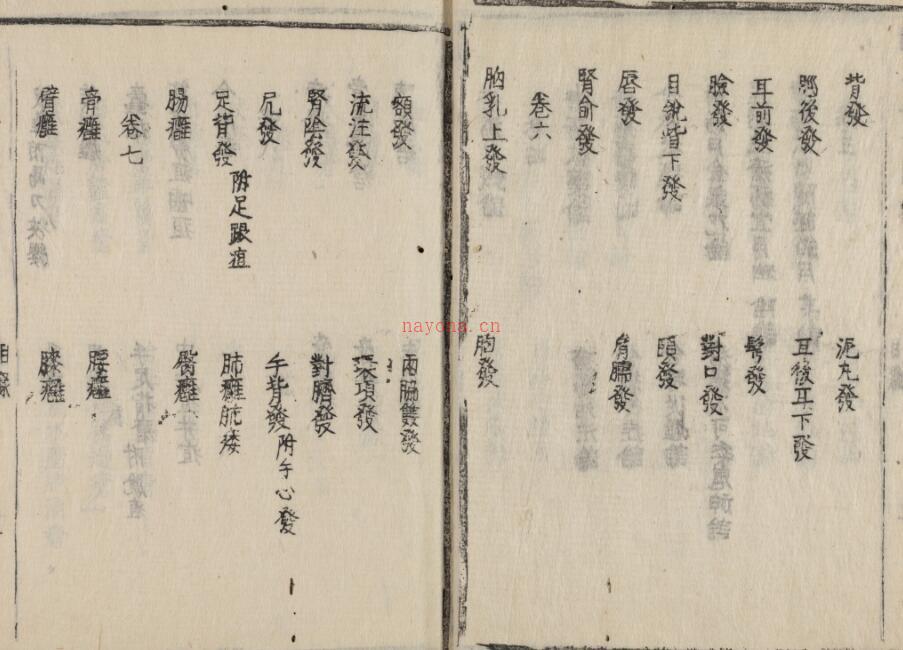 背發
泥丸發
腦後發
耳後耳下發
耳前發
髩發
臉發
對口發
目銳眥下發
頤發
唇發
肩臑發
腎俞發
卷六
胸乳上發
胸發
額發
兩脇雙發
流注發
環項發
腎陰發
對臍發
尻發
手背發 附手心發
足背發 附足跟疽
肺癰肺痿
腸癰
臀癰
卷七
骨癰
腰癰
臂癰
膝癰
nayona.cn